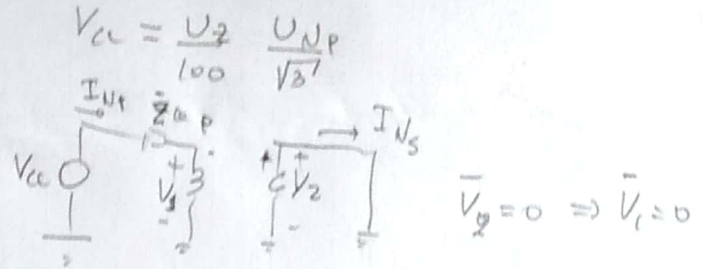 Vcc = U2/100 UNp/√3
INp Z̄cc p
INs
Vcc + V1 - + V2 -
V̄2 = 0 ⇒ V̄1 = 0